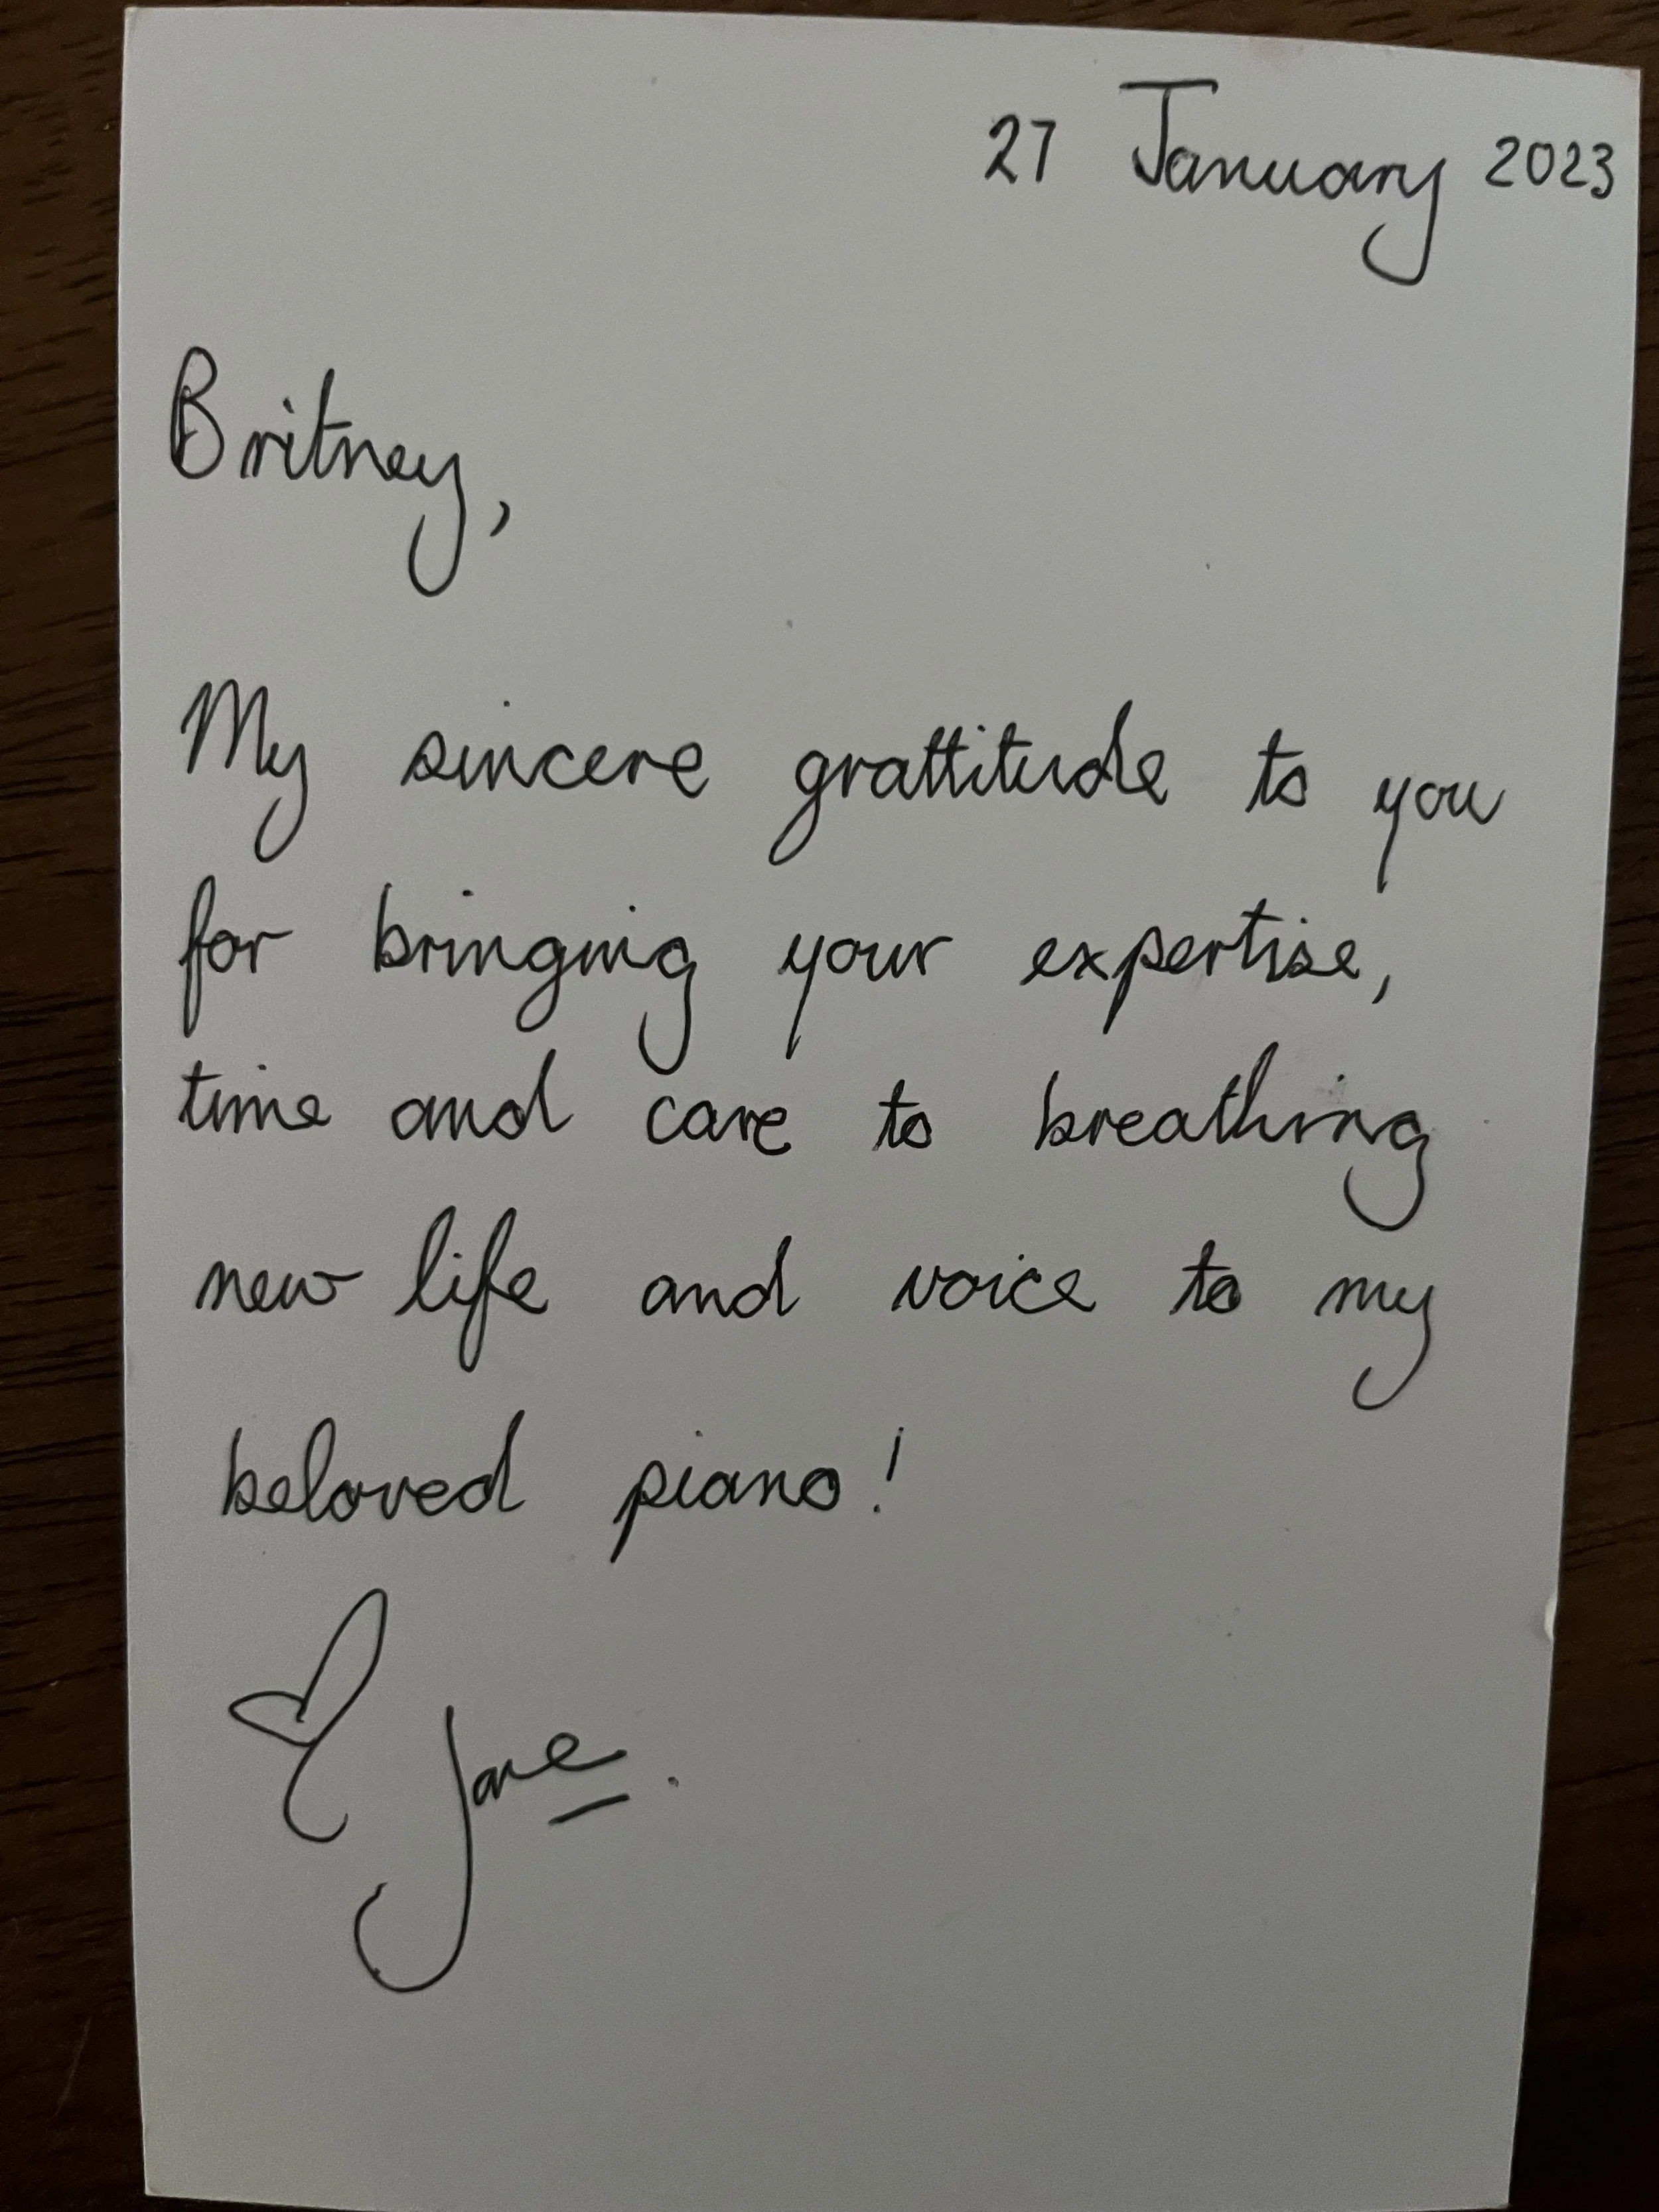 27 January 2023
Britney,
My sincere grattitude to you
for bringing your expertise,
time and care to breathing
new life and voice to my
beloved piano!
Jane.